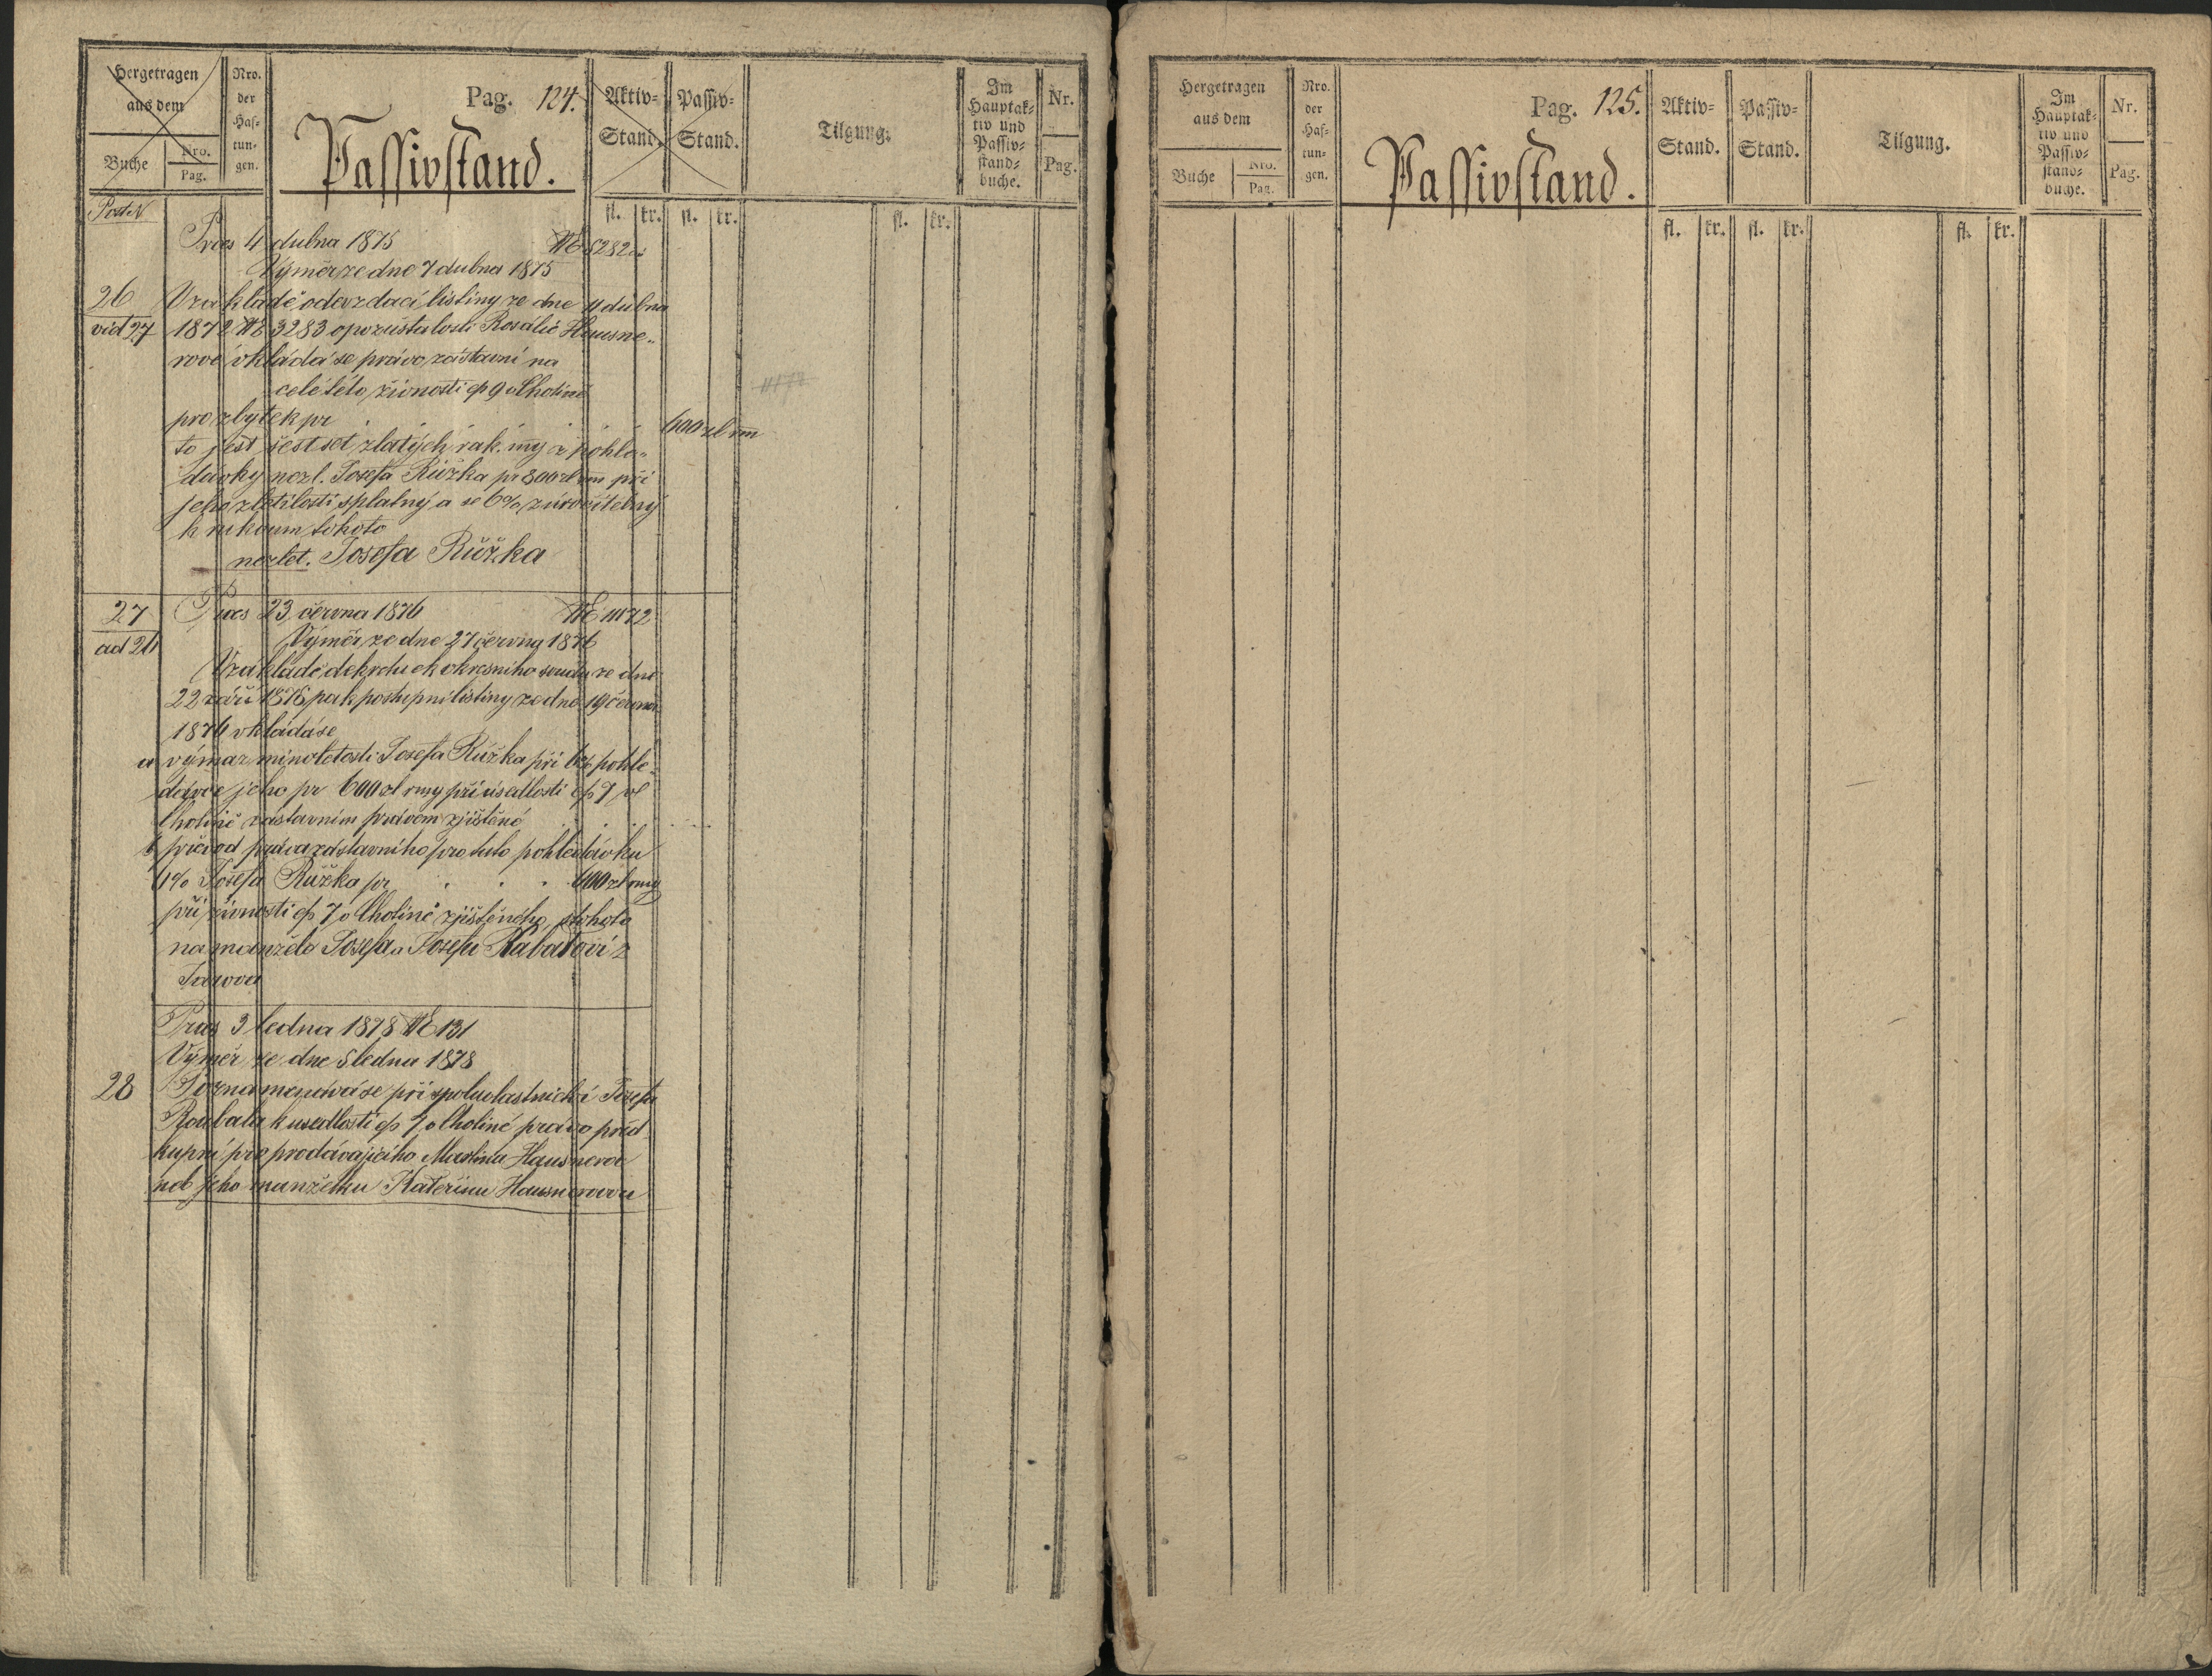 Hergetragen
aus dem
Buche
Nro.
Pag.
Nro.
der
Haf-
tun-
gen.
Pag. 124.
Passivstand.
Aktiv-
Stand.
Passiv-
Stand.
Tilgung.
Im
Hauptak-
tiv und
Passiv-
stand-
buche.
Nr.
Pag.
fl. kr. fl. kr. fl. kr.
Post N
Præs 4 dubna 1875
Výměr ze dne 7 dubna 1875
26
vid 27
V základě odevzdací listiny ze dne 4 dubna
1872 NE 3283 o pozůstalosti Rosálie Hausne-
rové vkládá se právo zástavní na
celé této živnosti čp 9 v Cholíně
pro zbytek pr . . . 600 zl rm
to jest šestset zlatých rak. mý z pohle-
dávky nezl. Josefa Růžka pr 800 zl rm při
jeho zletilosti splatný a se 6% zúročitelný
k rukoum tohoto
nezlet. Josefa Růžka
27
ad 26
Præs 23 června 1876 NE 11172
Výměr ze dne 27 června 1876
V základě dekretu ck okresního soudu ze dne
22 září 1875 pak postupní listiny ze dne 19 června
1876 vkládá se
a výmaz minoletosti Josefa Růžka při 6% pohle-
dávce jeho pr 600 zl rmy při usedlosti čp 7 v
Cholíně zástavním právem zjištěné
b převod práva zástavního pro tuto pohledávku
6% Josefa Růžka pr . . . 600 zl rmy
při živnosti čp 7 v Cholíně zjištěného, z tohoto
na manžele Josefa a
Præs 3 ledna 1878 NE 131
Výměr ze dne 5 ledna 1878
28
Poznamenává se při spoluvlastnictví Josefa
Roubala k usedlosti čp 7 v Cholíně právo před-
kupní pro prodávajícího Martina Hausnera
neb jeho manželku Kateřinu Hausnerovou
Hergetragen
aus dem
Buche
Nro.
Pag.
Nro.
der
Haf-
tun-
gen.
Pag. 125.
Passivstand.
Aktiv-
Stand.
Passiv-
Stand.
Tilgung.
Im
Hauptak-
tiv und
Passiv-
stand-
buche.
Nr.
Pag.
fl. kr. fl. kr. fl. kr.